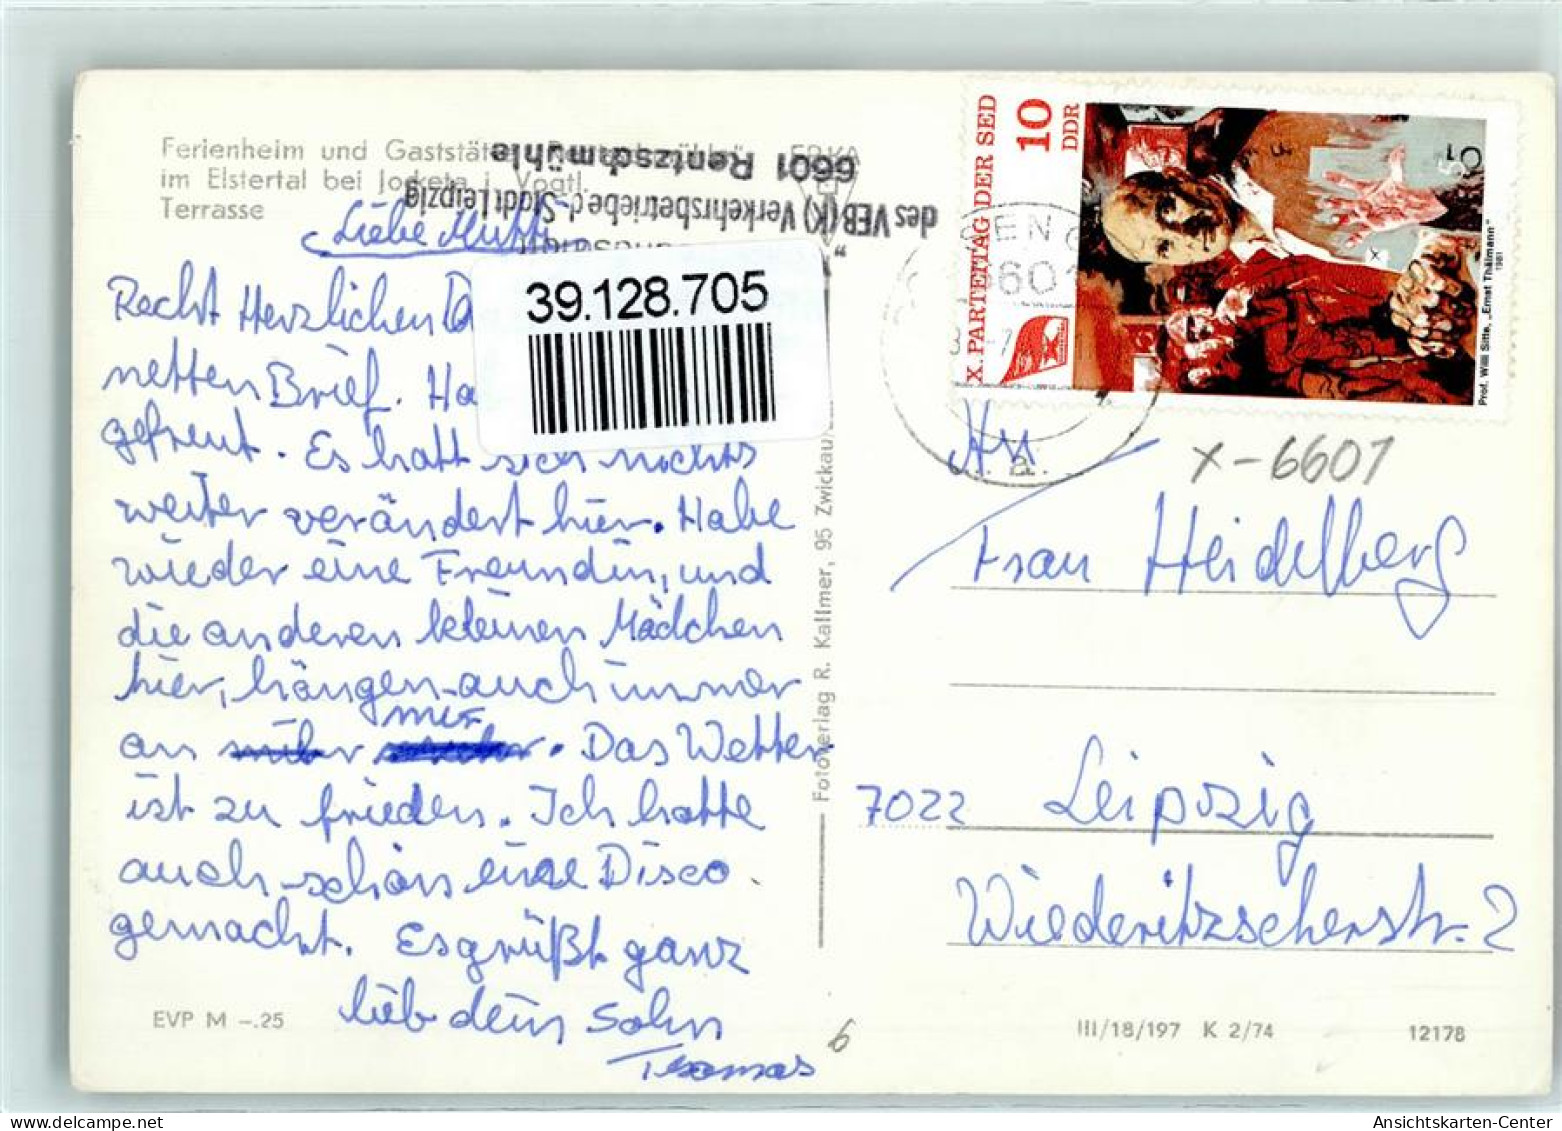 Ferienheim und Gaststätte
im Elstertal bei Jocketa i. Vogtl.
Terrasse
des VEB (K) Verkehrsbetriebe d. Stadt Leipzig
6601 Rentzschmühle
Liebe Mutti
Recht Herzlichen
netten Brief. Ha
gefreut. Es hatt sich nichts
weiter verändert hier. Habe
wieder eine Freundin, und
die anderen kleinen Mädchen
hier, hängen auch immer
mir
an . Das Wetter
ist zu frieden. Ich hatte
auch schon eine Disco
gemacht. Es grüßt ganz
lieb dein Sohn
Thomas
EVP M -.25
39.128.705
Fotoverlag R. Kallmer, 95 Zwickau/
X. PARTEITAG DER SED
10
DDR
+5
Prof. Willi Sitte, „Ernst Thälmann"
1981
An
X-6601
Frau Heidelberg
7022 Leipzig
Wiederitzscherstr. 2
6
III/18/197 K 2/74
12178
Ansichtskarten-Center